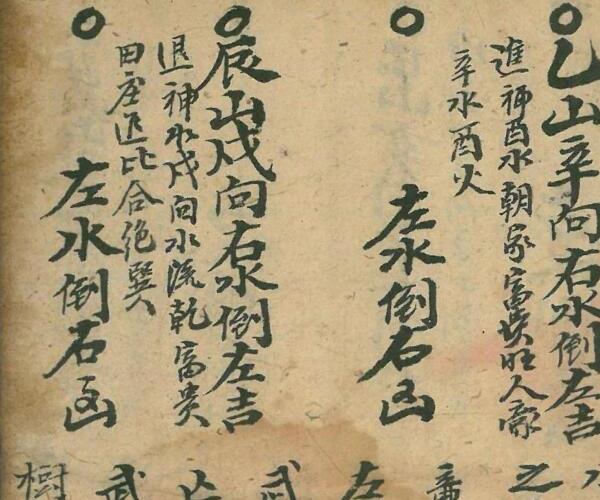 乙山辛向右水倒左吉
進神酉水朝家富贵旺人家
辛水酉火
左水倒右凶
辰山戍向右水倒左吉
退神水戍向水流乾富贵
田庄退比合绝巽
左水倒右凶
之
左
武
武
樹